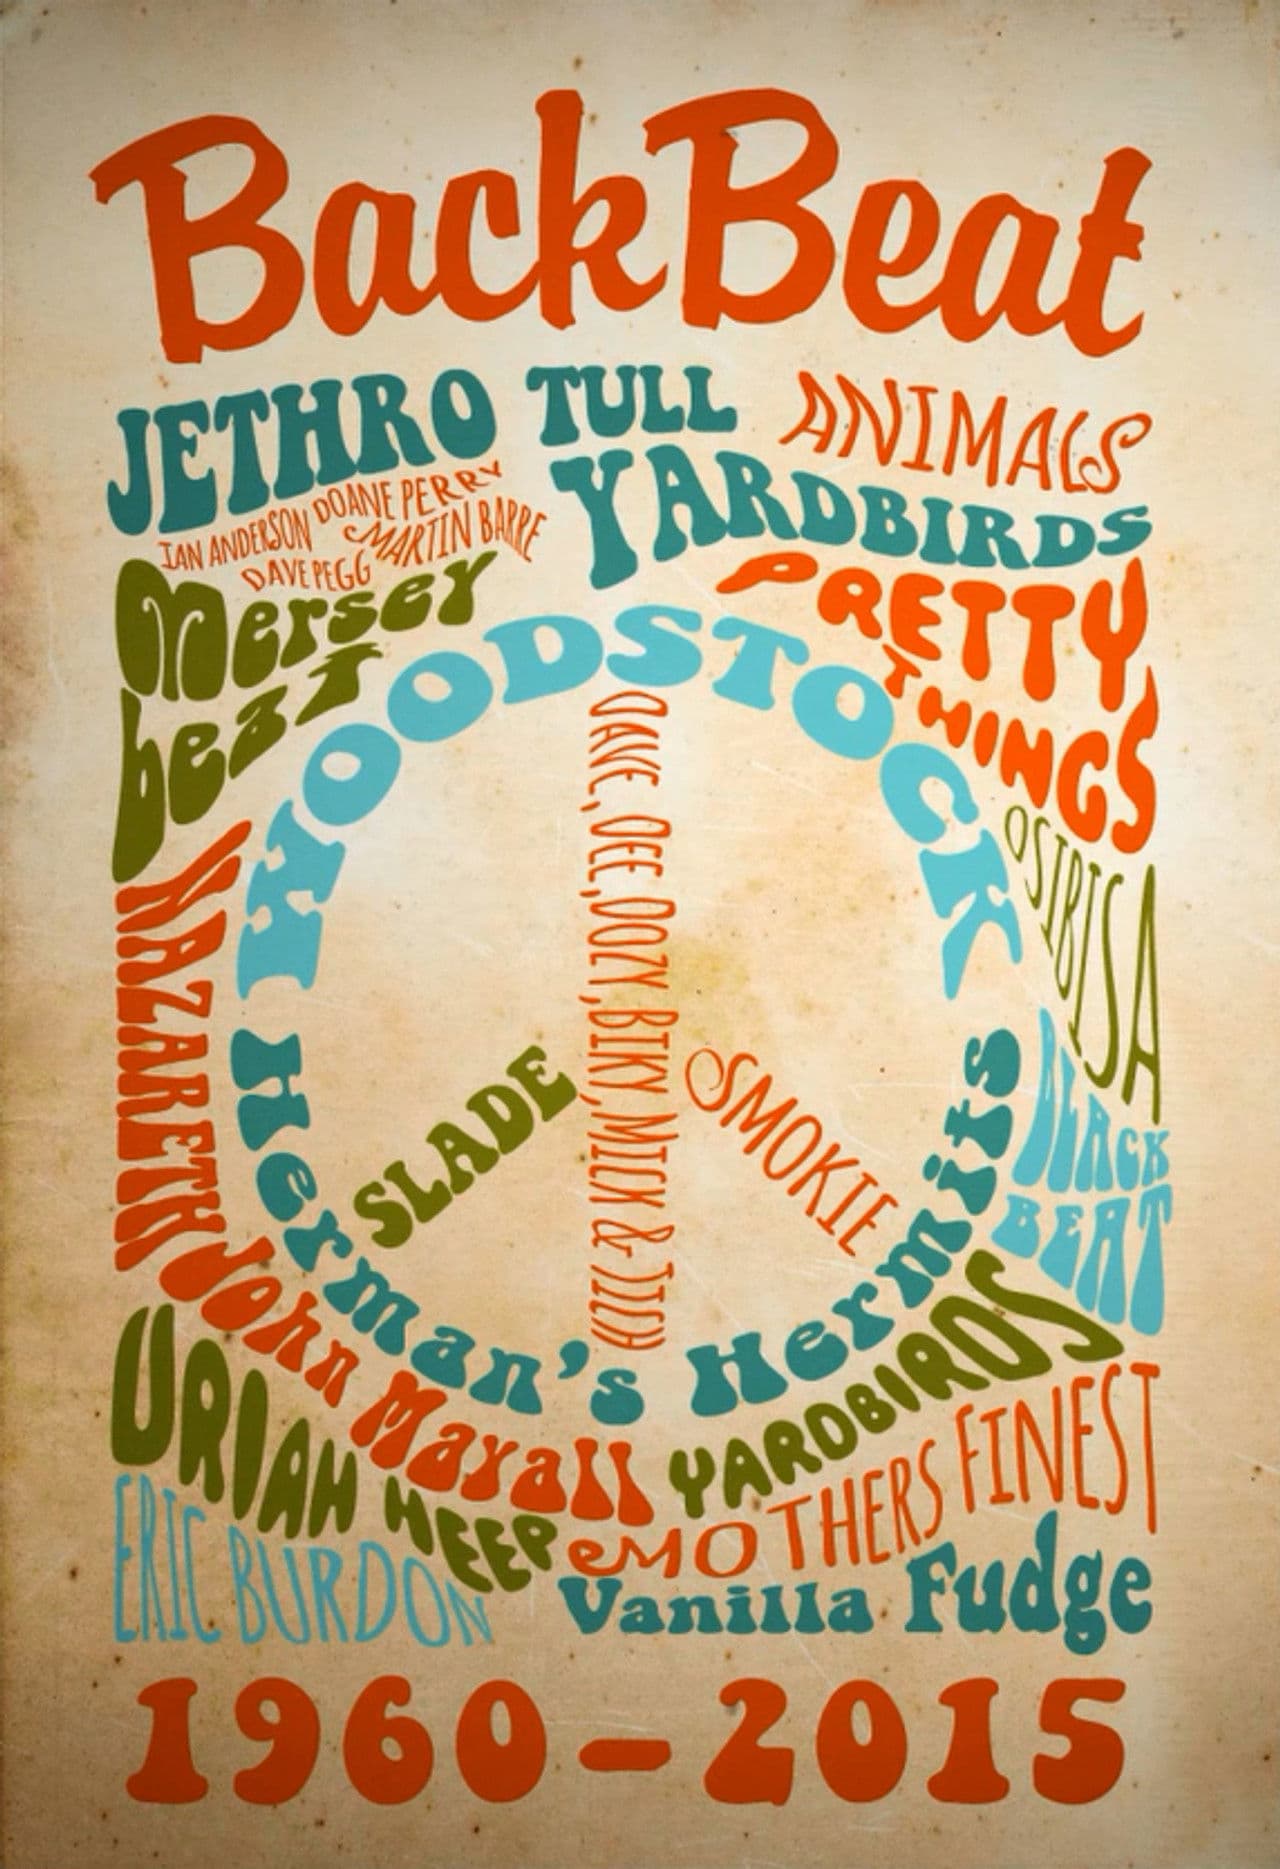 BackBeat
JETHRO TULL
ANIMALS
IAN ANDERSON
DOANE PERRY
DAVE PEGG
MARTIN BARRE
YARDBIRDS
Mersey
beat
PRETTY
THINGS
WOODSTOCK
OSIBISA
NAZARETH
DAVE, DEE, DOZY, BIKY, MICK & TICH
SLADE
SMOKIE
BLACK
BEAT
Herman's Hermits
John Mayall
YARDBIRDS
URIAH HEEP
MOTHERS FINEST
ERIC BURDON
Vanilla Fudge
1960-2015